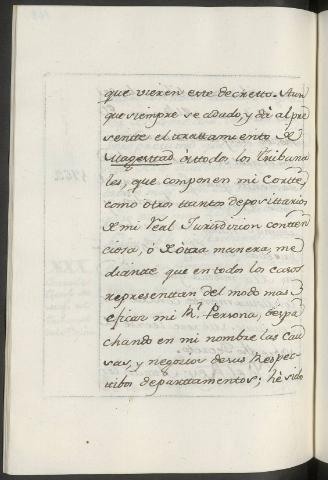 que vieren este decretto. Aun
que siempre se adado, y dà al pre
sentte el trattamiento de
Magesttad â ttodos los Tribuna
les, que componen mi Cortte,
como otros ttantos deposittarios
de mi Real Jurisdizion conttten
ciosa, ó de ôtra manera, me
diantte que en todos los casos
representtan del modo mas
eficaz mi Rl. Persona, despa
chando en mi nombre las cau
sas, y negocios de sus Respec
ttibos deparattamentos; hè sido